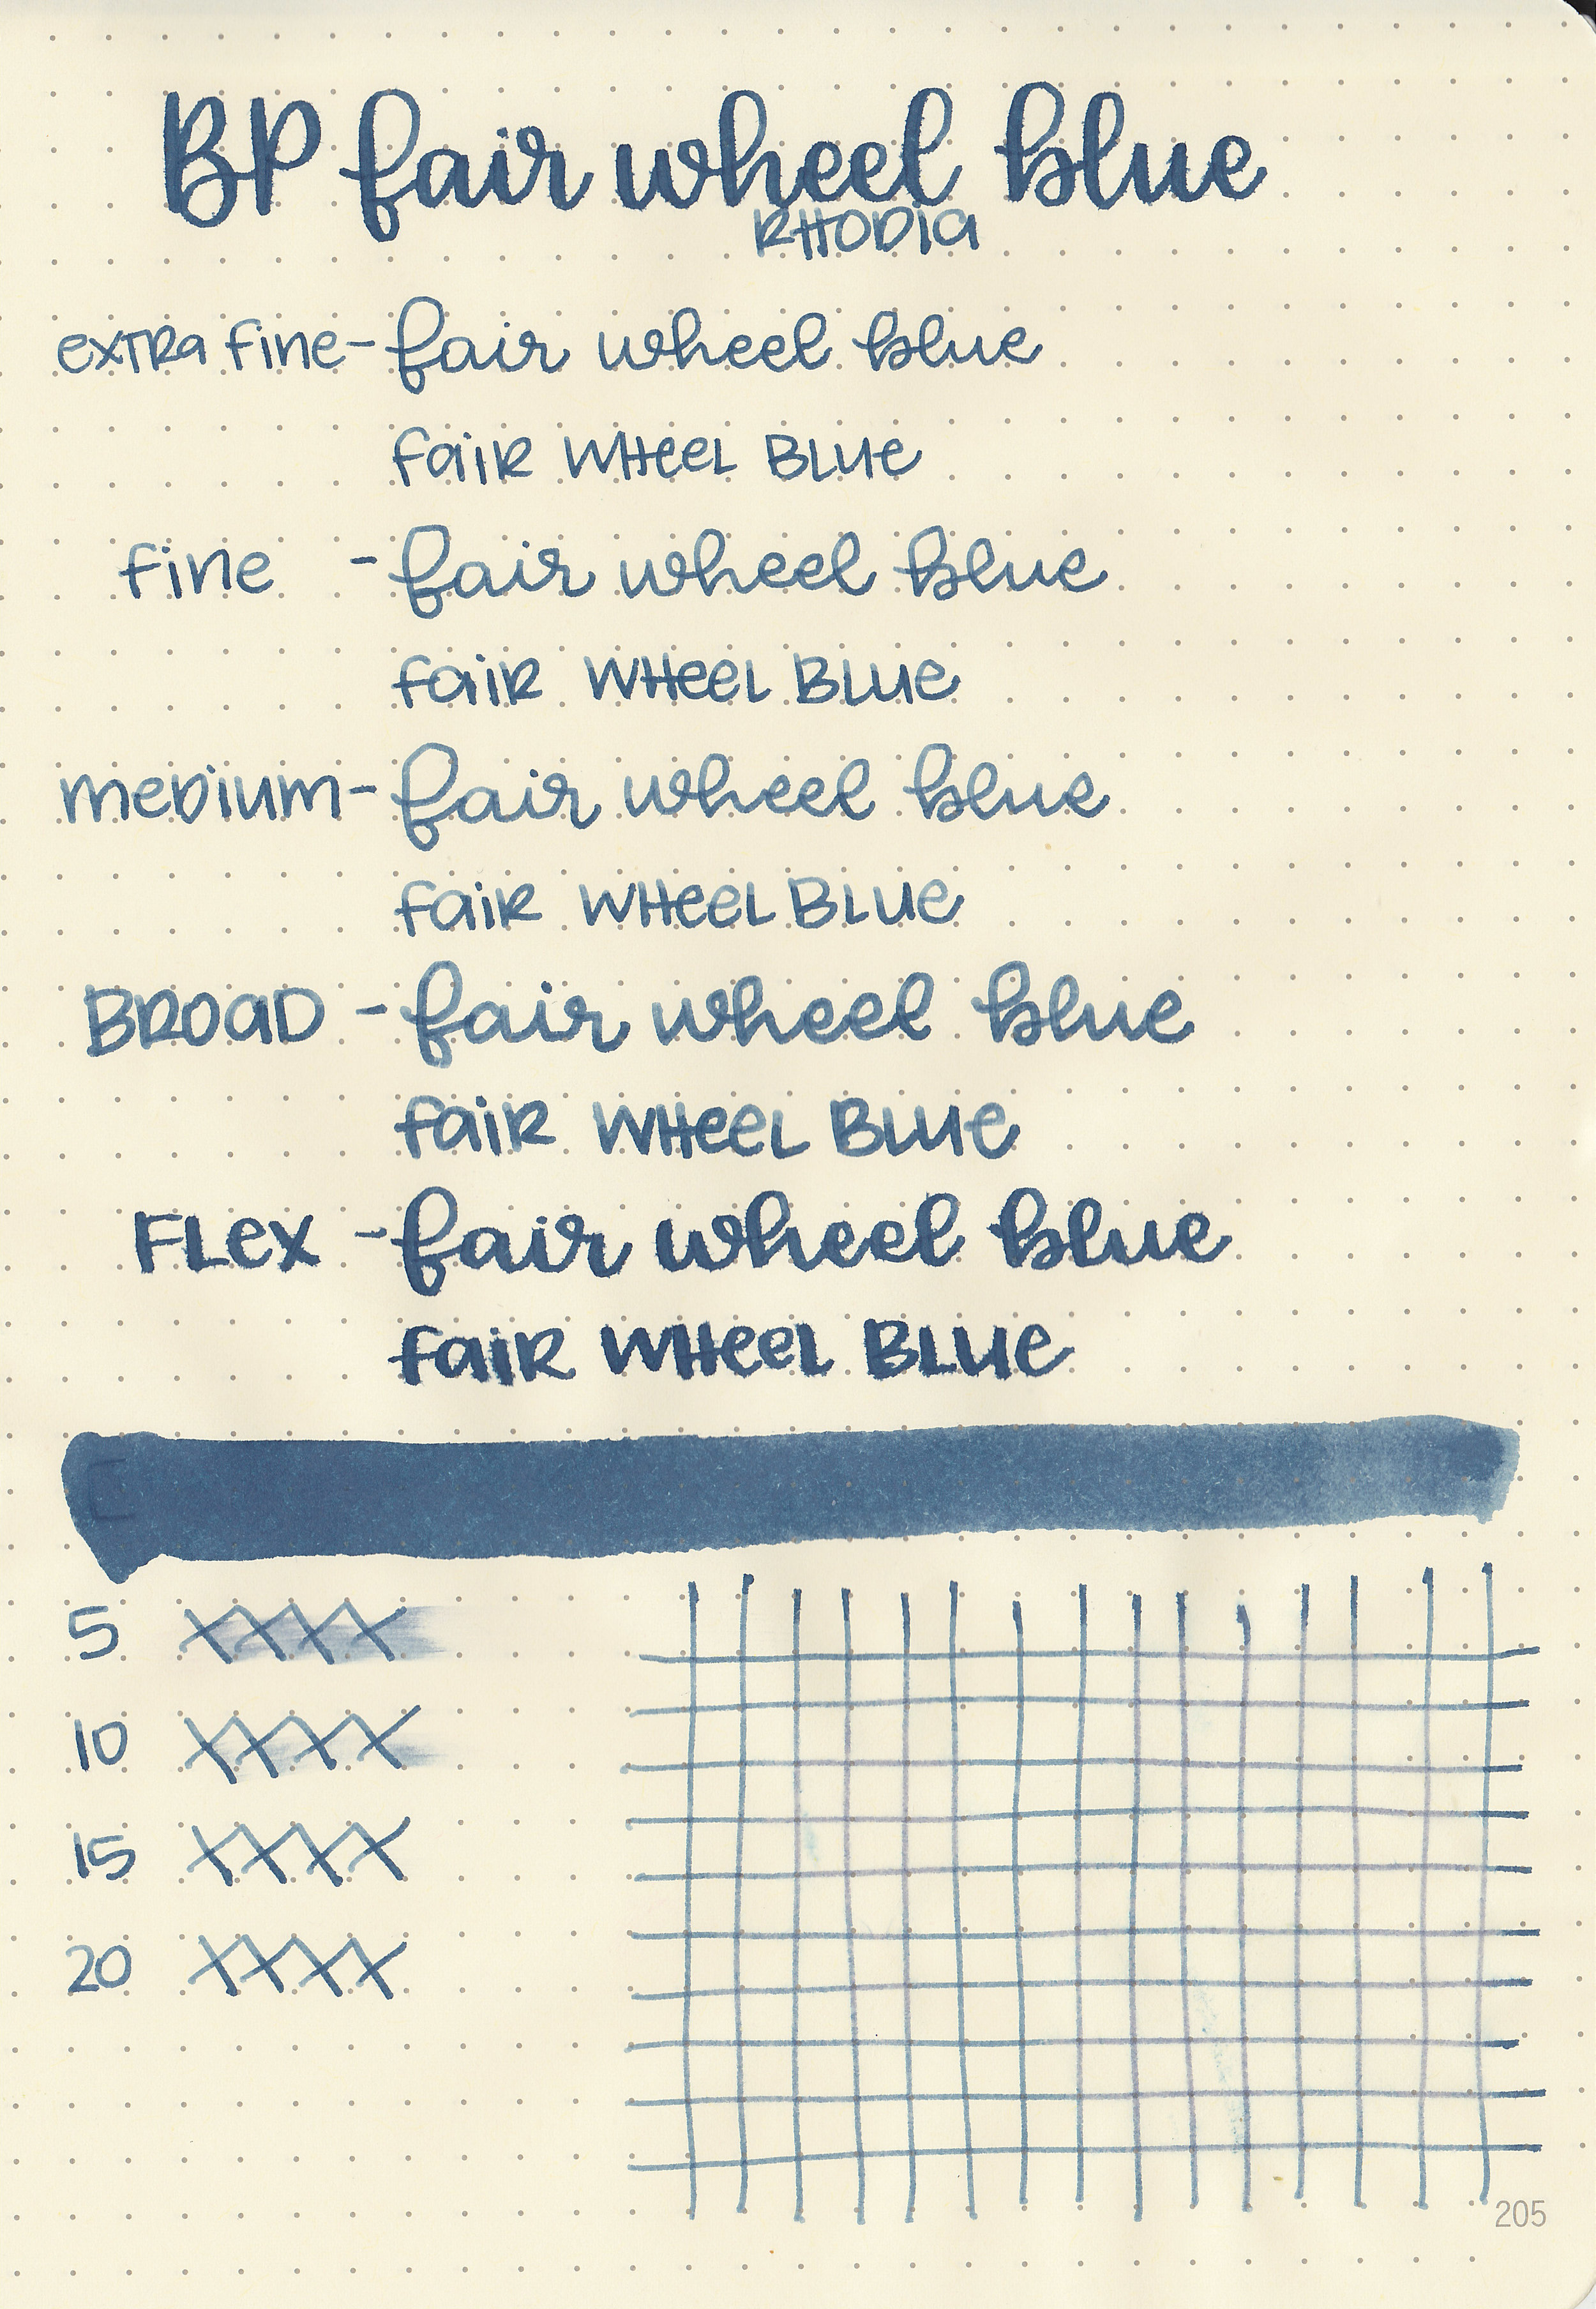 BP fair wheel blue
RHODIA
extra fine - fair wheel blue
fair wheel blue
fine - fair wheel blue
fair wheel blue
medium - fair wheel blue
fair wheel blue
Broad - fair wheel blue
fair wheel blue
Flex - fair wheel blue
fair wheel blue
5 XXXX
10 XXXX
15 XXXX
20 XXXX
205